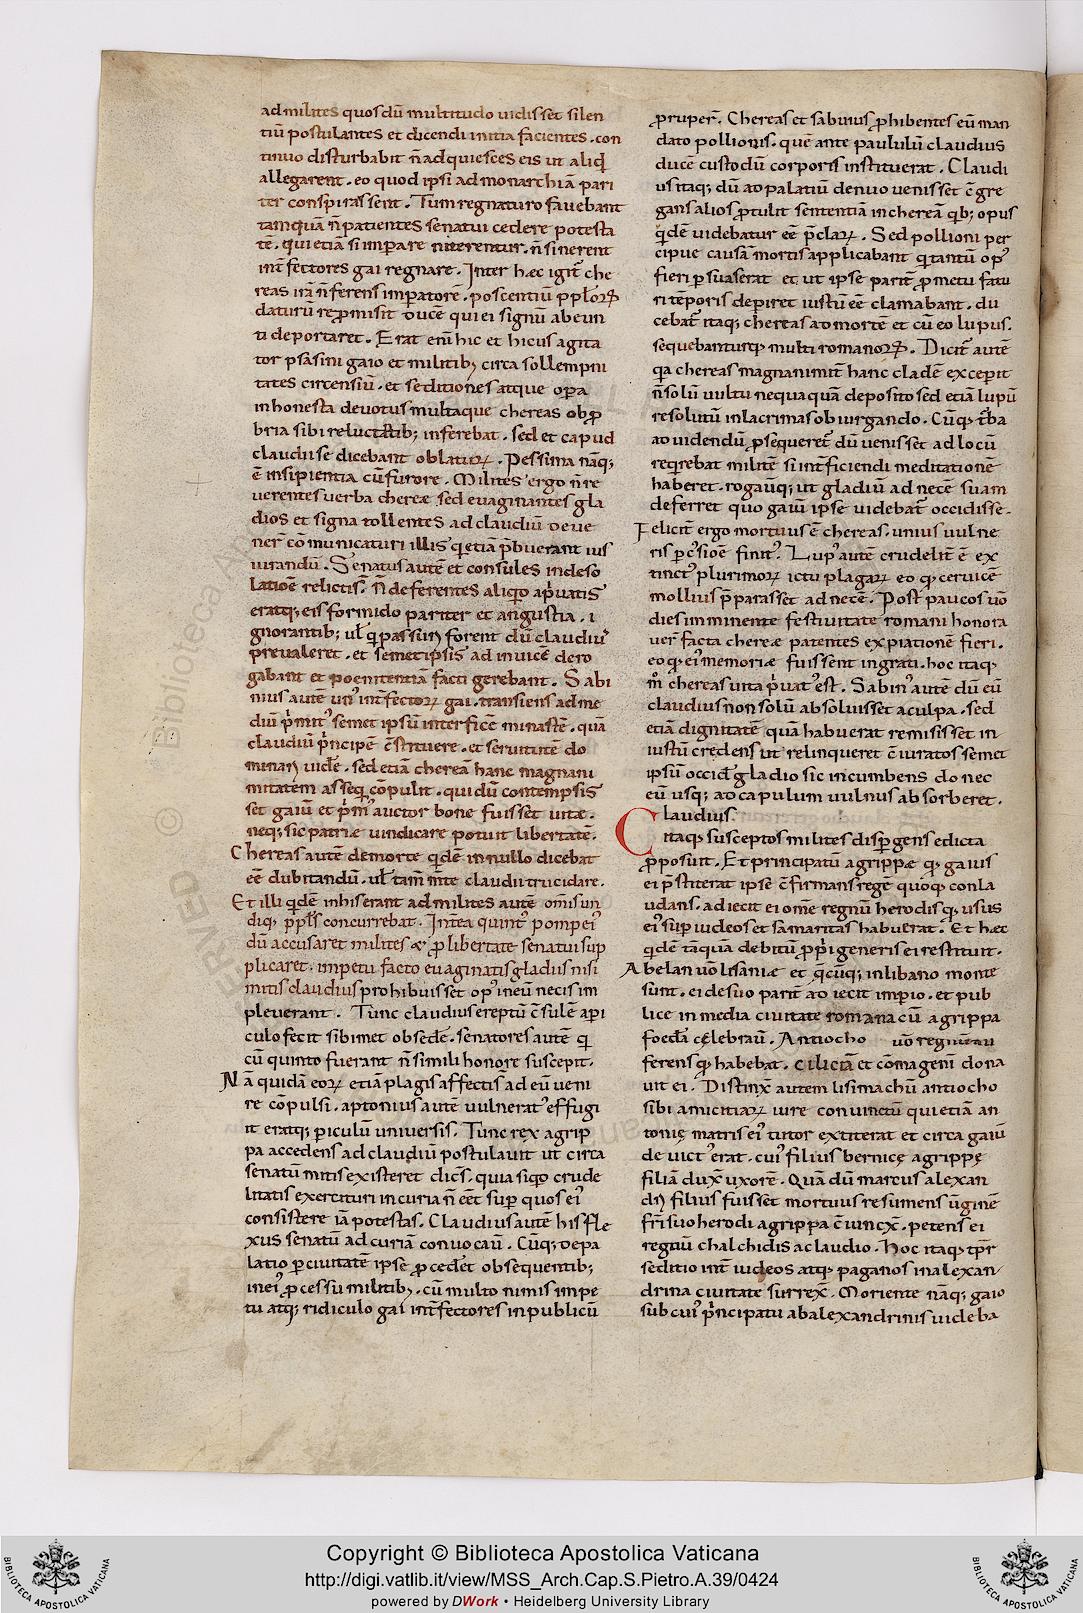 ad milites quos dũ multitudo uidisset silen
tiũ postulantes et dicendi initia facientes. con
tinuo disturbabit ñ adquiesces eis ut aliq̃
allegarent. eo quod ipsi ad monarchiã pari
ter conspirassent. Tum regnaturo fauebant
tamquã ñ patientes senatui cedere potesta
tẽ. qui etiã si imꝑare niterentur. ñ sinerent
int̃fectores gai regnare. Inter hæc igit̃ che
reas irã ñ ferens imꝑatorẽ. poscentiũ pplorꝝ
daturũ reꝓmisit ducẽ qui ei signũ ab eun
ti deportaret. Erat enĩ hic et hicus agita
tor psasini gaio et militibꝫ circa sollempni
tates circensiũ. et seditiones atque oꝑa
inhonesta deuotus multaque chereas obꝓ
bria sibi reluctãtibꝫ inferebat. sed et capud
claudii se dicebant oblaturꝝ. Pessima nãqꝫ
ẽ insipientia cũ furore. Milites ergo ñ re
uerentes uerba chereæ sed euaginantes gla
dios et signa tollentes ad claudiũ deue
ner̃ cõmunicaturi illis q̃ etiã p̃buerant ius
iurandũ. Senatus autẽ et consules in deso
latioẽ relictis. ñ deferentes aliqͦ a p̃uatis
eratqꝫ eis formido pariter et angustia. i
gnorantibꝫ ul̃ q̃ passurꝝ forent dũ claudiuꝰ
preualeret. et semetipsis ad inuicẽ dero
gabant et poenitentiã facti gerebant. Sabi
nius autẽ unꝰ int̃fectorꝝ gai. transiens ad me
diũ p̃mitꝰ semet ipsũ interficẽ minastẽ. quã
claudiũ p̃ncipẽ c̃stituere. et seruitutẽ do
minarꝝ uidẽ. sed etiã chereã hanc magnani
mitatem asseq̃ cõpulit. qui dũ contempsis
set gaiũ et p̃mꝰ auctor bone fuisset uitæ.
neqꝫ sic patriæ uindicare potuit libertatẽ.
Chereas autẽ de morte q̃dẽ in nullo dicebat
eẽ dubitandũ. ul̃ tam̃ m̃te claudii trucidare.
Et illi q̃dẽ in his erant ad milites autẽ omis un
diqꝫ ppls concurrebat. Int̃ea quintꝰ pompeiꝰ
dũ accusaret milites & ꝓ libertate senatui sup
plicaret. impetu facto euaginatis gladiis nisi
mitis claudius prohibuisset opꝰ in eũ necis im
pleuerant. Tunc claudius ereptũ c̃sulẽ aꝑi
culo fecit sibimet obsedẽ. senatores autẽ q̃
cũ quinto fuerant ñ simili honore suscepit.
Nã quidã eorꝝ etiã plagis affectis ad eũ ueni
re cõpulsi. aptonius autẽ uulneratꝰ effugi
it eratqꝫ ꝑiculũ uniuersis. Tunc rex agrip
pa accedens ad claudiũ postulauit ut circa
senatũ mitis existeret dicẽs. quia siqͦ crude
litatis exercituri in curia ñ eẽt suꝑ quos eiꝰ
consistere iã potestas. Claudius autẽ his fle
xus senatũ ad curiã conuocauũ. Cũqꝫ de pa
latio ꝑ ciuitatẽ ipse ꝓcederẽt obsequentibꝫ
in eiꝰ ꝓcessu militibꝫ. cũ multo nimis impe
tu atqꝫ ridiculo gai int̃fectores in publicũ
ꝓruper̃. Chereas et sabinius ꝓhibentes eũ man
dato pollionis. quẽ ante paululũ claudius
ducẽ custodũ corporis instituerat. Claudi
us itaqꝫ dũ ad palatiũ denuo uenisset c̃gre
gans alios ꝓtulit sententiã in chereã q̃bꝫ opus
q̃dẽ uidebatur eẽ p̃clarꝝ. Sed pollioni per
cipue causã mortis applicabant q̃ tantũ opꝰ
fieri ꝑsuaserat et ut ipse parit̃ ꝓ metu futu
ri tẽporis deꝑiret iustũ eẽ clamabant. du
cebat̃ itaqꝫ chereas ad mortẽ et cũ eo lupus.
sequebanturqꝫ multi romanorꝝ. Dicit̃ autẽ
q̃a chereas magnanimit̃ hanc cladẽ exceperit
ñ solũ uultu nequaquã deposito sed etiã lupũ
resolutũ in lacrimas obiurgando. Cũqꝫ t̃ba
ad uidendũ ꝓsequeret̃ dũ uenisset ad locũ
req̃rebat militẽ si int̃ficiendi meditationẽ
haberet. rogauitqꝫ ut gladiũ ad necẽ suam
deferret quo gaiũ ipse uidebat̃ occidisse.
Felicit̃ ergo mortuus ẽ chereas. unius uulne
ris ꝑc̃sioẽ finitꝰ. Lupꝰ autẽ crudelit̃ ẽ ex
tinctꝰ plurimorꝝ ictu plagarꝝ eo qꝫ ceruicẽ
mollius p̃parasset ad necẽ. Post paucos uõ
dies imminente festiuitate romani honora
uer̃ facta chereæ patentes expiationẽ fieri.
eo qꝫ eiꝰ memoriæ fuissent ingrati. hoc itaqꝫ
mͦ chereas uita p̃uatꝰ est. Sabinꝰ autẽ dũ eũ
claudius non solũ absoluisset a culpa. sed
etiã dignitatẽ quã habuerat remisisset in
iustũ credens ut relinqueret c̃iuratos semet
ipsũ occidꝰ gladio sic incumbens donec
eũ usqꝫ ad capulum uulnus absorberet.
Claudius.
itaqꝫ susceptos milites disꝑgens edicta
ꝓposuit. Et principatũ agrippæ qꝫ gaius
ei p̃stiterat ipse c̃firmans regẽ quoqꝫ conla
udans. adiecit ei omẽ regnũ herodis qꝫ usus
eiꝰ suꝑ iudeos et samaritas habuerat. Et hæc
q̃dẽ tãquã debitũ ꝓprii generis ei restituit.
Abelan uõ lisaniæ et q̃cũqꝫ in libano monte
sunt. ei de suo parit̃ adiecit imꝑio. et pub
lice in media ciuitate romana cũ agrippa
foedã celebrauũ. Antiocho uõ regnum au
ferens qꝫ habebat. ciliciã et cõmagenĩ dona
uit ei. Distinx̃ autem lisimachũ antiocho
sibi amicitiarꝝ iure conuinctũ qui etiã an
tonię matris eiꝰ tutor extiterat et circa gaiũ
deuictꝰ erat. cuiꝰ filius bernicę agrippę
filiã dux̃ uxorẽ. Quã dũ marcus alexan
drꝝ filius fuisset mortuus resumens ũginẽ
fr̃i suo herodi agrippa c̃iuncx̃. petens ei
regnũ chalchidis a claudio. Hoc itaqꝫ tp̃r
seditio int̃ iudeos atqꝫ paganos in alexan
drina ciuitate surrex̃. Moriente nãqꝫ gaio
sub cuiꝰ p̃ncipatu ab alexandrinis uideba
Copyright © Biblioteca Apostolica Vaticana
http://digi.vatlib.it/view/MSS_Arch.Cap.S.Pietro.A.39/0424
powered by DWork • Heidelberg University Library
BIBLIOTECA APOSTOLICA VATICANA
BIBLIOTECA APOSTOLICA VATICANA